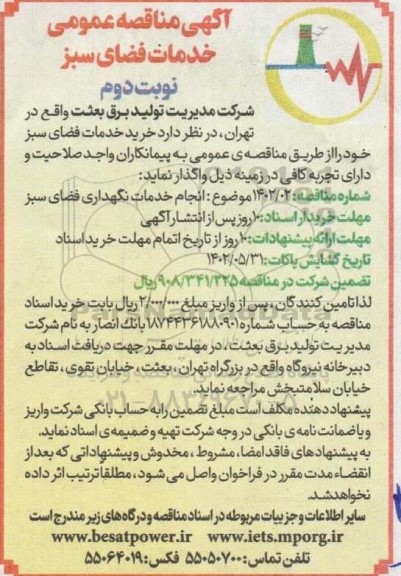 آگهی مناقصه عمومی
خدمات فضای سبز
نوبت دوم
شرکت مدیریت تولید برق بعثت واقع در
تهران ، در نظر دارد خرید خدمات فضای سبز
خود را از طریق مناقصه ی عمومی به پیمانکاران واجد صلاحیت و
دارای تجربه کافی در زمینه ذیل واگذار نماید:
شماره مناقصه: ۱۴۰۲/۰۲ موضوع : انجام خدمات نگهداری فضای سبز
مهلت خریدار اسناد: ۱۰ روز پس از انتشار آگهی
مهلت ارائه پیشنهادات: ۱۰ روز از تاریخ اتمام مهلت خرید اسناد
تاریخ گشایش پاکات: ۱۴۰۲/۰۵/۳۱
تضمین شرکت در مناقصه ۹۰۸/۳۴۱/۲۲۵ ریال
لذا تامین کنندگان ، پس از واریز مبلغ ۲/۰۰۰/۰۰۰ ریال بابت خرید اسناد
مناقصه به حساب شماره ۱۸۷۴۴۳۶۱۸۸۰۹۰۱ بانک انصار به نام شرکت
مدیریت تولید برق بعثت ، در مهلت مقرر جهت دریافت اسناد به
دبیرخانه نیروگاه واقع در بزرگراه تهران ، بعثت ، خیابان تقوی ، تقاطع
خیابان سلامتبخش مراجعه نماید.
پیشنهاد دهنده مکلف است مبلغ تضمین را به حساب بانکی شرکت واریز
و یا ضمانت نامه ی بانکی در وجه شرکت تهیه و ضمیمه ی اسناد نماید.
به پیشنهاد های فاقد امضا ، مشروط ، مخدوش و پیشنهاداتی که بعد از
انقضاء مدت مقرر در فراخوان واصل می شود ، مطلقا ترتیب اثر داده
نخواهد شد.
سایر اطلاعات و جزییات مربوطه در اسناد مناقصه و درگاه های زیر مندرج است
www.besatpower.ir www.iets.mporg.ir
تلفن تماس: ۵۵۰۵۰۷۰۰ فکس: ۵۵۰۶۴۰۱۹